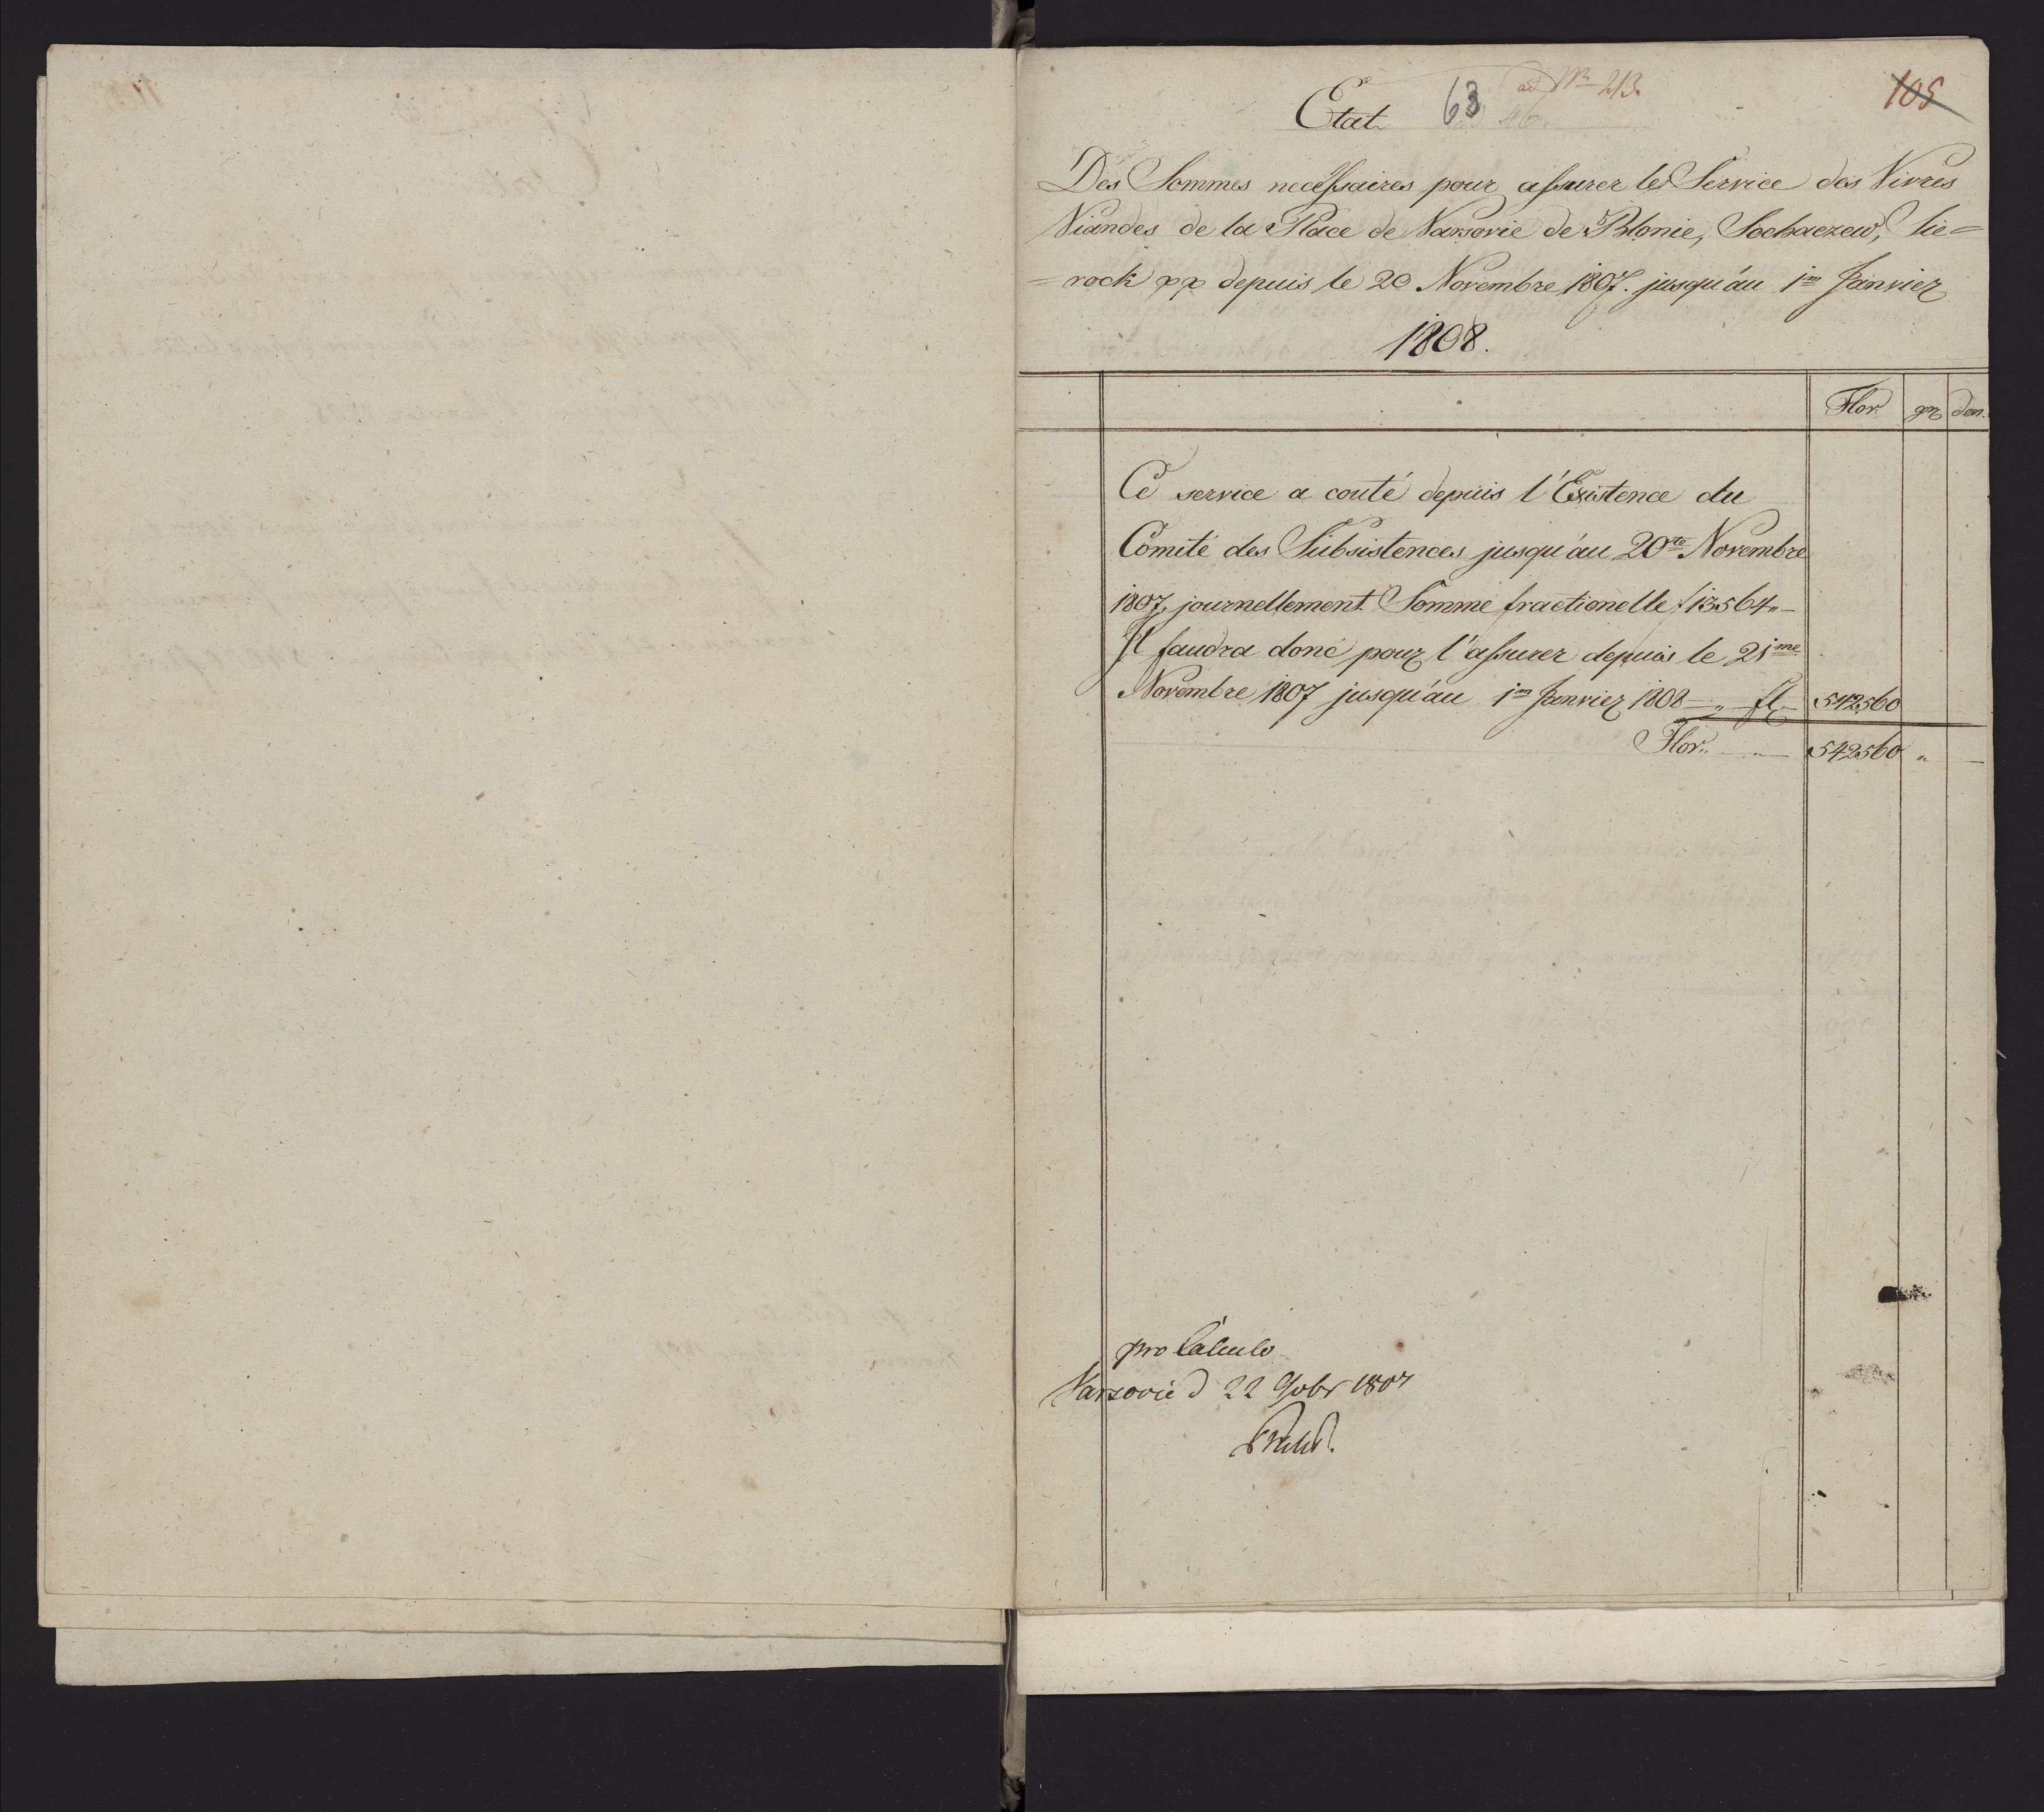 ad Nr 213.
105
Etat 63
ad 46.
Des Sommes necessaires pour assurer les Service des Vivres
Viandes de la Place de Varsovie de Blonie, Sochaczew, Sie=
=rock pp depuis le 20 Novembre 1807. jusqu'au 1m Janvier
1808.
Flor. gr den.
Ce service a couté depuis l'Existence du
Comité des Subsistences jusqu'au 20te Novembre
1807, journellement Somme fractionelle f 13564 „ —
Il faudra donc pour l'assurer depuis le 21me
Novembre 1807 jusqu'au 1m Janvier 1808 — „ fl — 542560
Flor. „ — 542560 „ —
pro Calculo
Varsovie d 22 9obr 1807